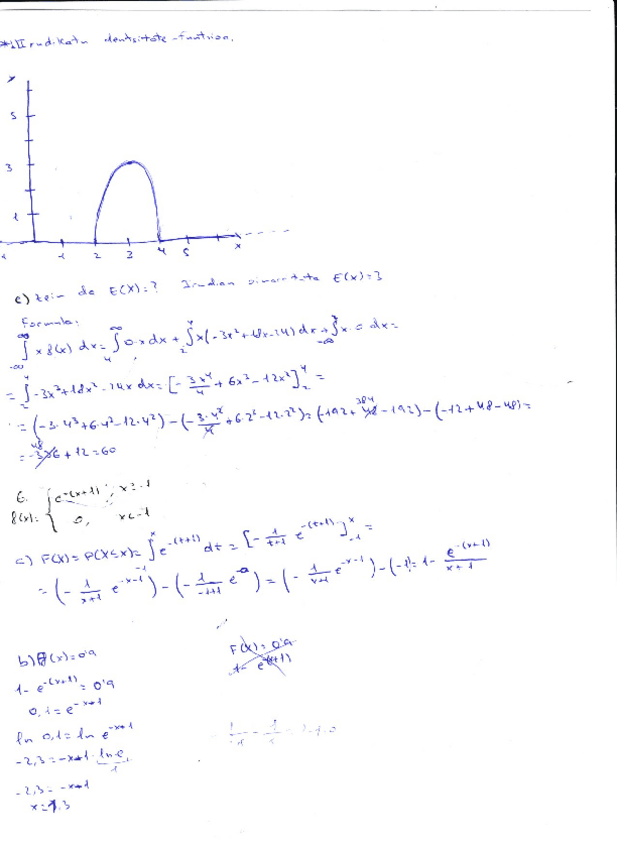 dentsitate-funtzioa.
5
3
1
1 2 3 4 5 x
c) Zein da E(X)=? Irudian E(X)=3
Formula:
∫ x f(x) dx = ∫ 0·x dx + ∫ x(-3x²+18x-24) dx + ∫ x·0 dx =
= ∫ -3x³+18x²-24x dx = [-3x⁴/4 + 6x³-12x²]₂⁴ =
= (-3·4³+6·4³-12·4²)-(-3·2⁴/4+6·2³-12·2²) = (-192+384-192)-(-12+48-48) =
+12=60
6.
f(x)= { e^-(x+1), x≥-1
0, x<-1
a) F(x)=P(X≤x)= ∫ e^-(t+1) dt = [-1/(t+1) e^-(t+1)]₋₁ˣ =
= (-1/(x+1) e^-x-1)-(-1/(-1+1) e^-0) = (-1/(x+1) e^-x-1)-(-1) = 1- e^-(x+1)/(x+1)
b) F(x)=0'9
F(x)=0'9
1- e^-(x+1)
1- e^-(x+1) = 0'9
0,1=e^-x+1
ln 0,1 = ln e^-x+1
-2,3=-x+1·ln e
1
-2,3=-x+1
x=1,3